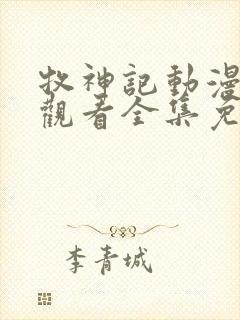 牧神記動漫
觀看全集免
李青城